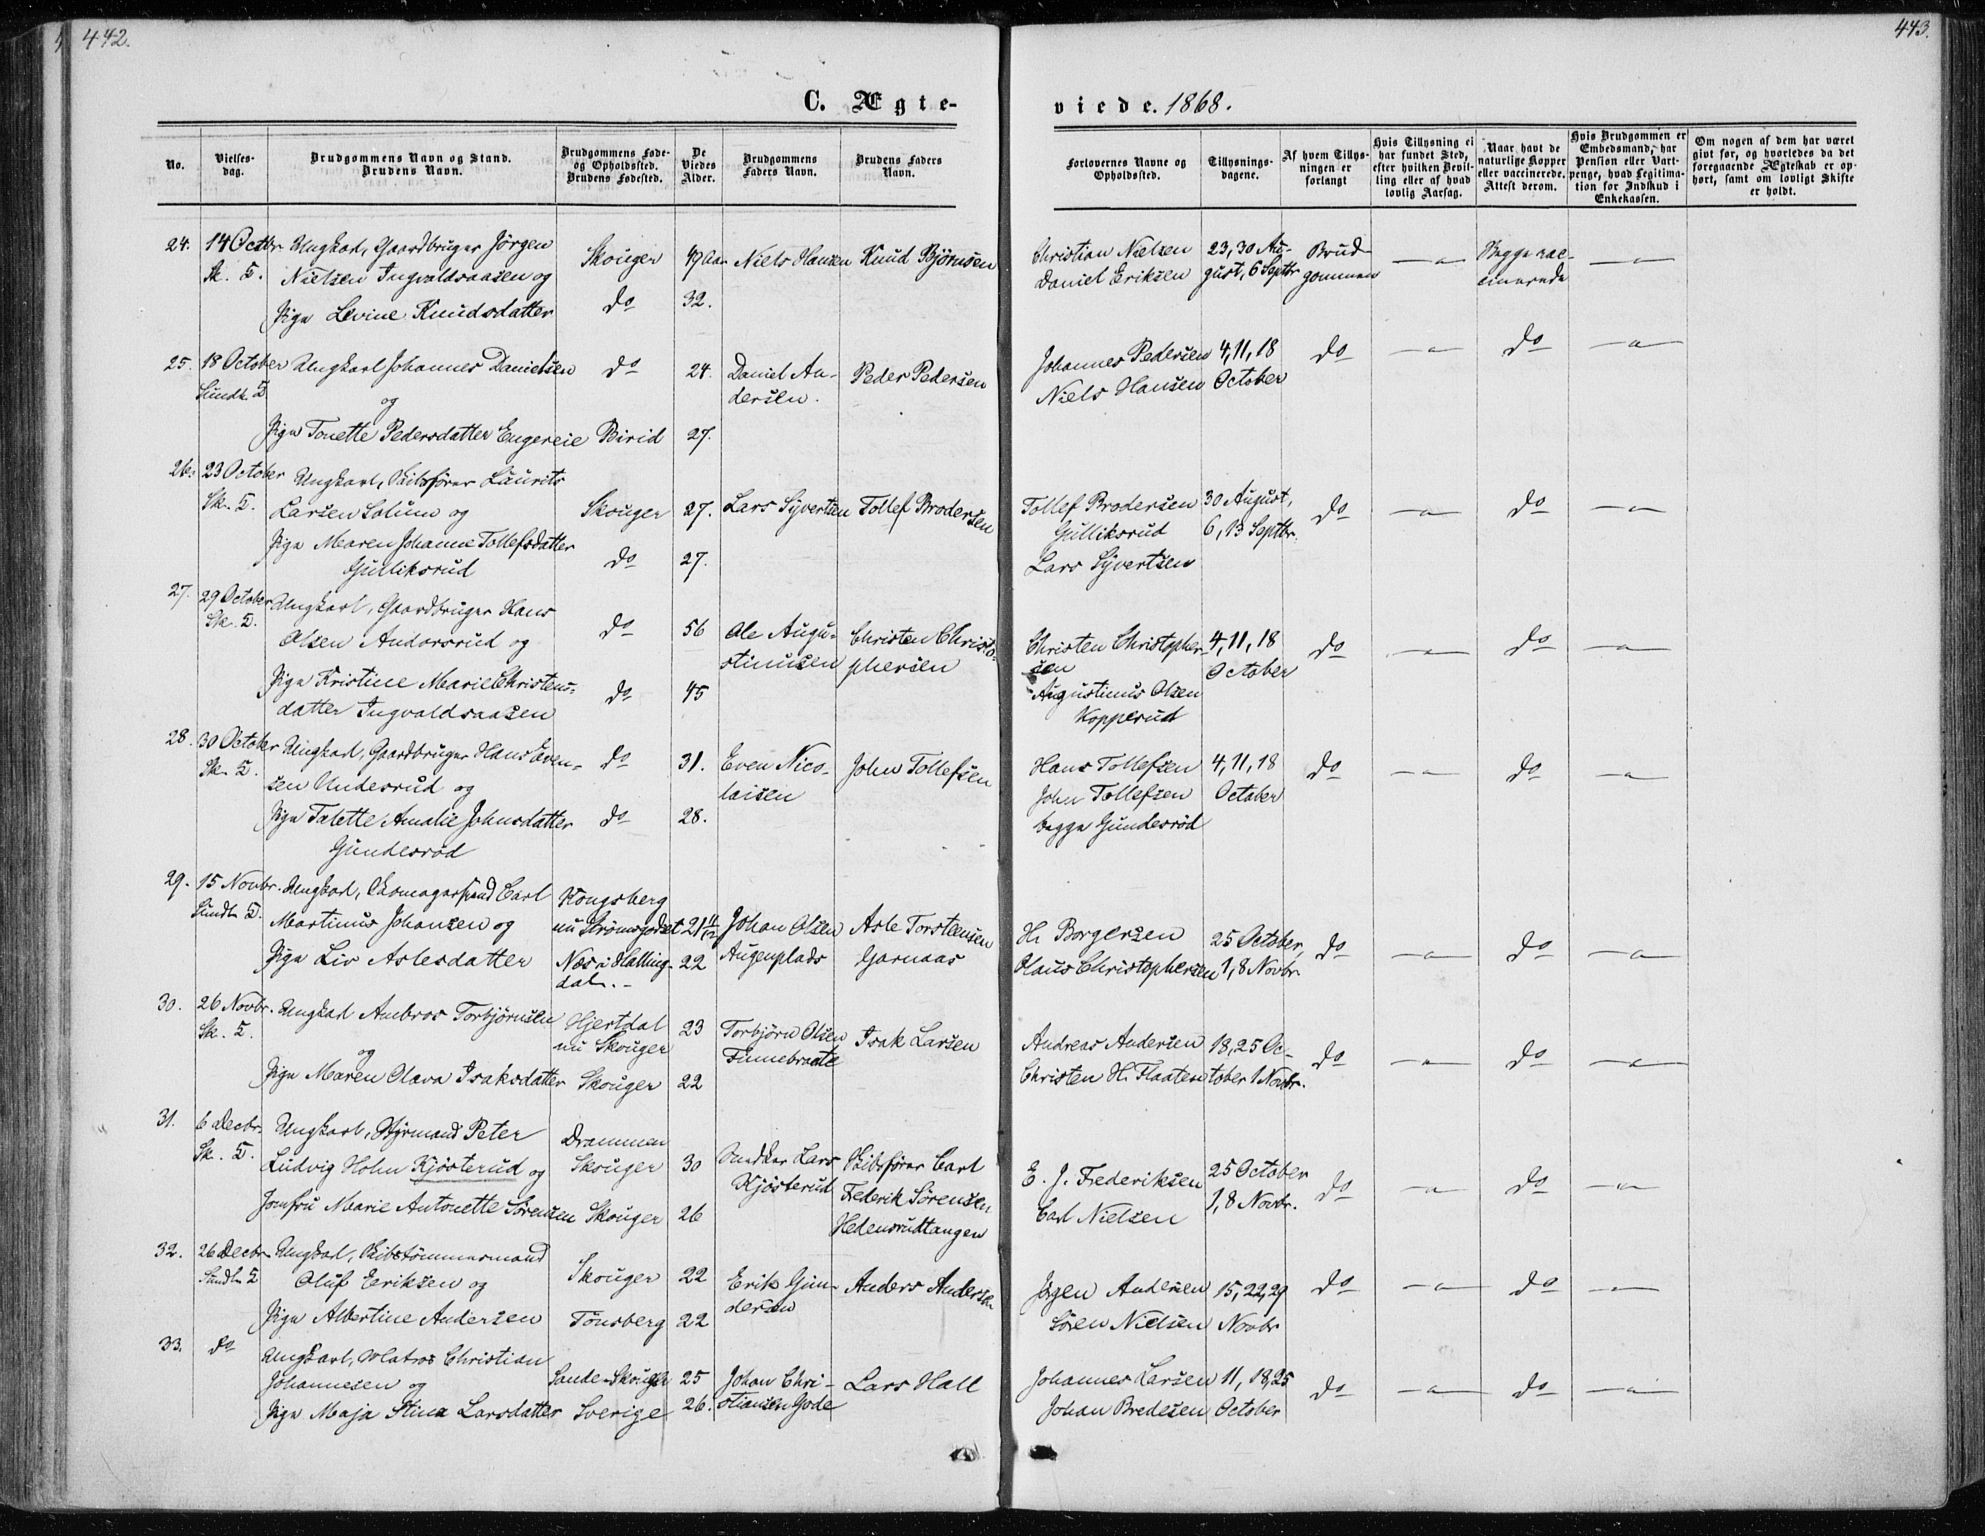 442.
443.
C. Ægte-
viede. 1868.
No.
Vielses-
dag.
Brudgommens Navn og Stand.
Brudens Navn.
Brudgommens Føde-
og Opholdssted.
Brudens Fødested.
De
Viedes
Alder.
Brudgommens
Faders Navn.
Brudens Faders
Navn.
Forlovernes Navne og
Opholdssted.
Tillysnings-
dagene.
Af hvem Tillys-
ningen er
forlangt
Hvis Tillysning ei
har fundet Sted,
efter hvilken Bevil-
ling eller af hvad
lovlig Aarsag.
Naar havt de
naturlige Kopper
eller vaccinerede.
Attest derom.
Hvis Brudgommen er
Embedsmand, har
Pension eller Vart-
penge, hvad Legitima-
tion for Indskud i
Enkekassen.
Om nogen af dem har været
givt før, og hvorledes da det
foregaaende Ægteskab er op-
hørt, samt om lovligt Skifte
er holdt.
24.
14 Octbr.
Sk. K.
Ungkarl, Gaardbruger Jörgen
Nielsen Ingvaldsaasen og
Pige Levine Knudsdatter
Skouger
do
49 Aar
32.
Niels Hansen
Knud Björnsen
Christian Nielsen
Daniel Eriksen
23, 30 Au-
gust, 6 Septbr
Brud-
gommen
— " —
Begge vac-
cinerede
— " —
25.
18 October
Sundh. K.
Ungkarl Johannes Danielsen
og
Pige Tonette Pedersdatter Engereie
do
Birid
24.
27.
Daniel An-
dersen.
Peder Pedersen
Johannes Pedersen
Niels Hansen
4, 11, 18
October
do
— " —
do
— " —
26.
23 October
Sk. K.
Ungkarl, Skibsförer Laurits
Larsen Solum og
Pige Maren Johanne Tollefsdatter
Gulliksrud
Skouger
do
27.
27.
Lars Syvertsen
Tollef Brodersen
Tollef Brodersen
Gulliksrud
Lars Syvertsen
30 August,
6, 13 Septbr.
do
— " —
do
— " —
27.
29 October
Sk. K.
Ungkarl, Gaardbruger Hans
Olsen Andorsrud og
Pige Kristine Marie Christens-
datter Ingvaldsaasen
do
do
56
45
Ole Augu-
stinusen
Christen Christo-
phersen
Christen Christopher-
sen
Augustinus Olsen
Kopperud
4, 11, 18
October
do
— " —
do
— " —
28.
30 October
Sk. K.
Ungkarl, Gaardbruger Hans Even-
sen Undesrud og
Pige Talette Amalie Johnsdatter
Gundesröd
do
do
31.
28.
Even Nico-
laisen
John Tollefsen
Hans Tollefsen
John Tollefsen
begge Gundesröd
4, 11, 18
October
do
— " —
do
— " —
29.
15 Novbr.
Sundh K.
Ungkarl, Skomagersvend Carl
Martinus Johansen og
Pige Liv Aslesdatter
Kongsberg
nu Strömsgodset
Næs i Halling-
dal. -
21 11/12
22
Johan Olsen
Augenplads
Asle Torsteensen
Garnaas
H. Borgersen
Claus Christophersen
25 October
1, 8 Novbr.
do
— " —
do
— " —
30.
26 Novbr.
Sk. K.
Ungkarl Ambros Torbjörnsen
og
Pige Maren Olava Isaksdatter
Hjertdal
nu Skouger
Skouger
23
22
Torbjörn Olsen
Finnebraate
Isak Larsen
Andreas Andersen
Christen H. Flaaten
18, 25 Oc-
tober 1 Novbr.
do
— " —
do
— " —
31.
6 Decbr.
Sk. K.
Ungkarl, Styrmand Peter
Ludvig Holm Kjösterud og
Jomfru Marie Antonette Sörensen
Drammen
Skouger
Skouger
30
26
Snedker Lars
Kjösterud
Skibsförer Carl
Frederik Sörensen
Hedensrudtangen
E. J. Frederiksen
Carl Nielsen
25 October
1, 8 Novbr.
do
— " —
do
— " —
32.
26 Decbr.
Sundh K
Ungkarl, Skibstömmermand
Oluf Eeriksen og
Pige Albertine Andersen
Skouger
Tönsberg
22
22
Erik Gun-
dersen
Anders Andersen
Jörgen Andersen
Sören Nielsen
15, 22, 29
Novbr
do
— " —
do
— " —
33.
do
Ungkarl, Matros Christian
Johannesen og
Pige Maja Stina Larsdatter
Sande - Skouger
Sverige
25
26.
Johan Chri-
stiansen Gode
Lars Hall
Johannes Larsen
Johan Bredesen
11, 18, 25
October
do
— " —
do
— " —